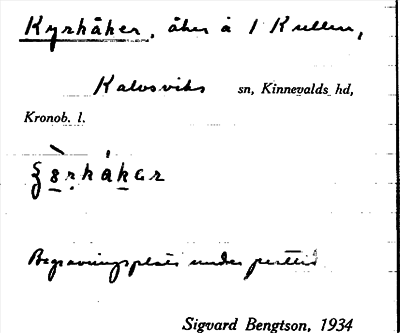 Kyrkåker, åker å 1 Kullen,
Kalvsviks sn, Kinnevalds hd,
Kronob. l.
Begravningsplats under pesttid
Sigvard Bengtson, 1934